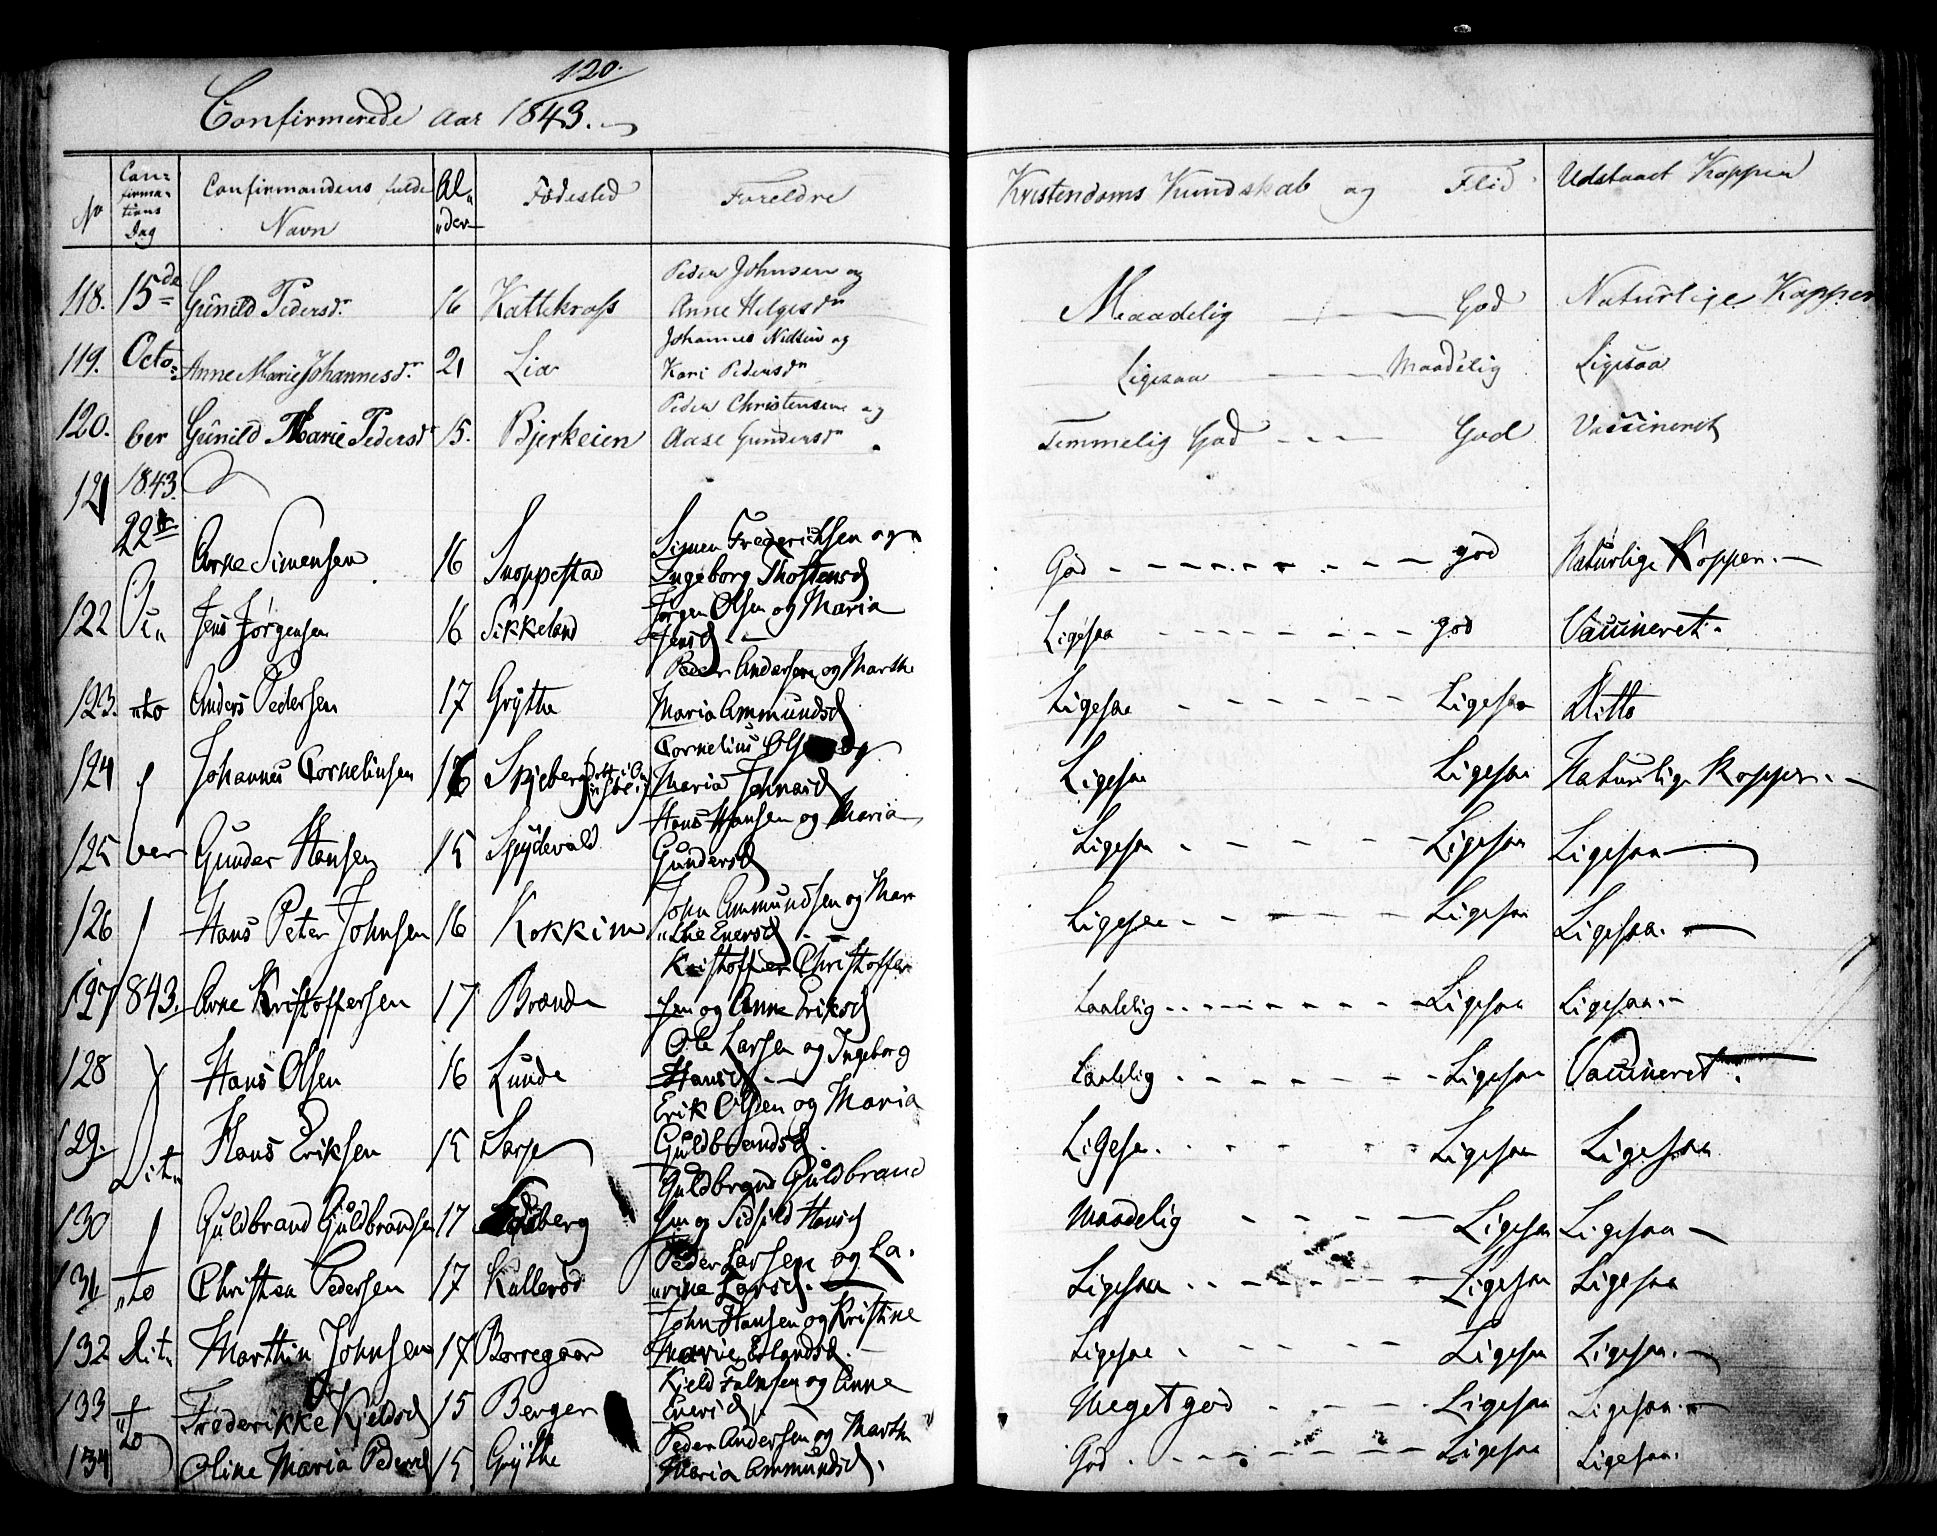 120.
Confirmerede Aar 1843.
No Con= firma= tions Dag Confirmandens fulde Navn Al= der Fødested Foreldre Kristendoms Kundskab og Flid Udstaaet Kopper
Peder Johnsen og
118. 15de Gunild Pedersdr 16 Kattekrafs Anne Helgesdr Maadelig God Naturlige Kopper
Johannes Nielsen og
119. Octo= Anne Marie Johannesdr 21 Lia Kari Pedersdr Ligesaa Maadelig Ligesaa
Peder Christensen og
120. ber Gunild Marie Pedersdr 15. Bjerkeien Aase Gundersdr Temmelig God God Vaccineret
121 1843.
22de Simen Frederichsen og
Arne Simensen 16 Snoppestad Ingeborg Thostensd God god Naturlige Kopper.
Jørgen Olsen og Maria
122 Jens Jørgensen 16 Sikkeland Jensd Ligesaa god Vaccineret.
Peder Andersen og Marthe
123. "to Anders Pedersen 17 Grythe Maria Ammundsd Ligesaa Ligesaa Ditto
Cornelius Olsen og
124 Johannes Cornelinsen 16 Skjeberg Maria Johnasd Ligesaa Ligesaa Naturlige Kopper.
Hans Hansen og Maria
125 ber Gunder Hansen 15 Spydevold Gundersd Ligesaa Ligesaa Ligesaa
John Ammundsen og Mar
126 Hans Peter Johnsen 16 Kokkim "the Enersd Ligesaa Ligesaa Ligesaa.
Kristoffer Christoffer
127 843. Arne Kristoffersen 17 Brænde sen og Anne Eriksd taalelig Ligesaa Ligesaa.
Ole Larsen og Ingeborg
128 Hans Olsen 16 Lunde Hansd taalelig Ligesaa Vaccineret.
Erik Olsen og Maria
129. Dit" Hans Eriksen 15 Sarpe Guldbrandsd. Ligesaa. Ligesaa Ligesaa
Guldbrand Guldbrand
130 Guldbrand Guldbrandsen 17 sen og Hansd Maadelig Ligesaa Ligesaa
Peder Larsen og La.
131 "to Christian Pedersen 17 Kullerød "rine Larsd. Ligesaa Ligesaa Ligesaa
John Hansen og Kristine
132 Dit" Marthin Johnsen 17 Borregaar Marie Erlandsd. Ligesaa Ligesaa Ligesaa.
Kjeld og Anne
133 "to Frederikke Kjeldsd 15 Berger Enersd Meget god Ligesaa Ligesaa.
Peder Andersen og Marthe
134 Oline Maria Pedersd 15 Grythe Maria Ammundsd. God Ligesaa Ligesaa.